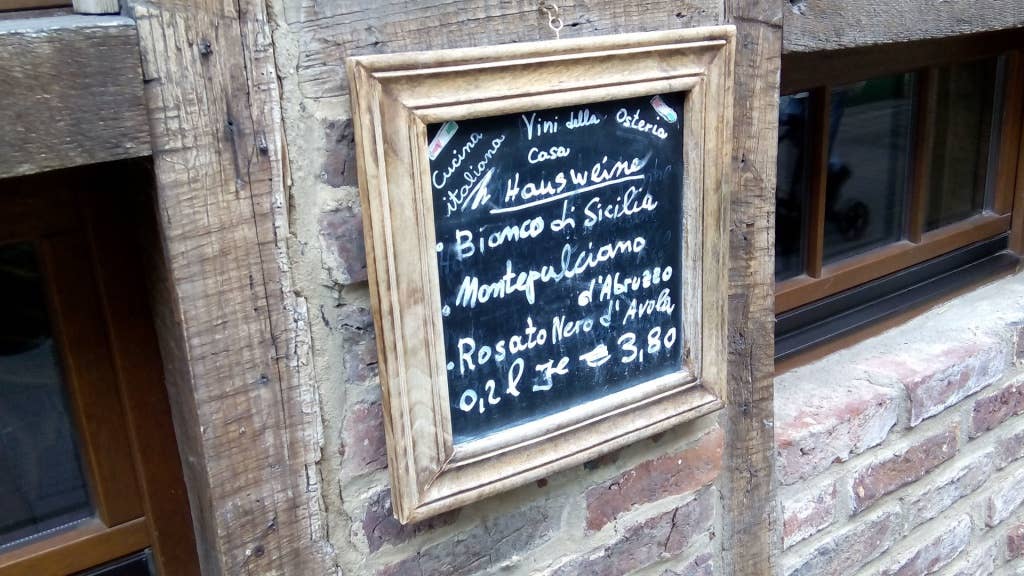 Cucina
italiana
Vini della Osteria
Casa
Hausweine
Bianco di Sicilia
Montepulciano
d'Abruzzo
Rosato Nero d'Avola
0,2 l je € 3,80